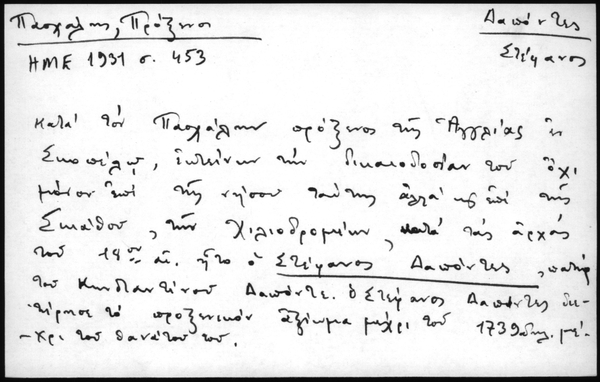 Πασχάλης, Πρόξενος
Δαπόντες
Στέφανος
ΗΜΕ 1931 σ. 453
Κατά τον Πασχάλην πρόξενος της Αγγλίας εν
Σκοπέλῳ, εκτείνων την δικαιοδοσίαν του όχι
μόνον επί της νήσου ταύτης αλλά και επί της
Σκιάθου, της Χιλιοδρομίων, κατά τας αρχάς
του 18ου αι. ήτο ο Στέφανος Δαπόντες, πατήρ
του Κωνσταντίνου Δαπόντε. ο Στέφανος Δαπόντες διε-
τήρησε το προξενικόν αξίωμα μέχρι του 1739 δηλ. μέ-
-χρι του θανάτου του.